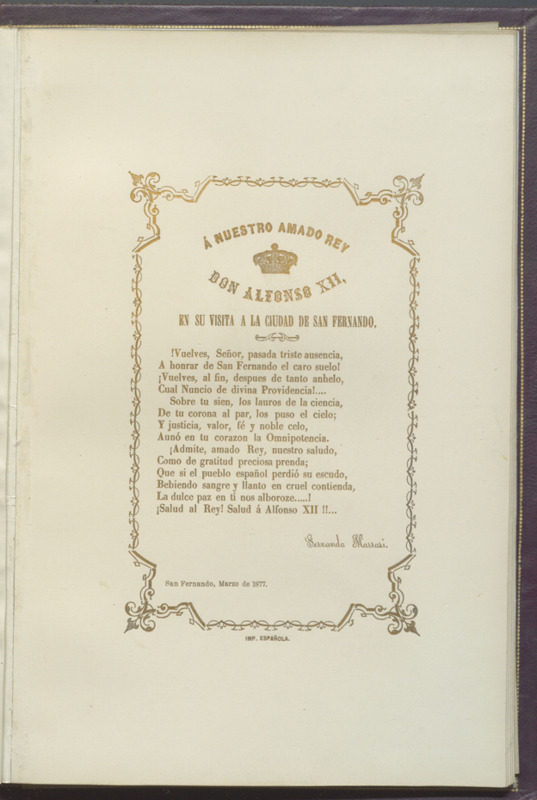 Á NUESTRO AMADO REY
DON ALFONSO XII,
EN SU VISITA A LA CIUDAD DE SAN FERNANDO.
!Vuelves, Señor, pasada triste ausencia,
A honrar de San Fernando el caro suelo!
¡Vuelves, al fin, despues de tanto anhelo,
Cual Nuncio de divina Providencia!....
Sobre tu sien, los lauros de la ciencia,
De tu corona al par, los puso el cielo;
Y justicia, valor, fé y noble celo,
Aunó en tu corazon la Omnipotencia.
¡Admite, amado Rey, nuestro saludo,
Como de gratitud preciosa prenda;
Que si el pueblo español perdió su escudo,
Bebiendo sangre y llanto en cruel contienda,
La dulce paz en ti nos alboroze.....!
¡Salud al Rey! Salud á Alfonso XII !!...
Fernando
San Fernando, Marzo de 1877.
IMP. ESPAÑOLA.